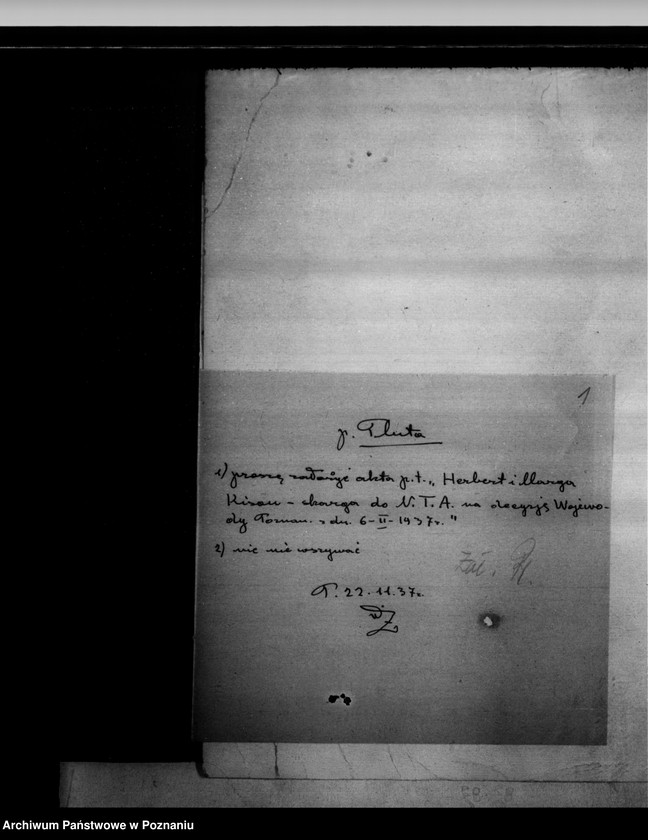 1
p. Pluta
1) proszę założyć akta p.t. „Herbert i Marga
Kirau – skarga do N.T.A. na decyzję Wojewo-
dy Poznań. z dn. 6-II-1937r."
2) nic nie wszywać
Zał.
P. 22.11.37r.
Archiwum Państwowe w Poznaniu